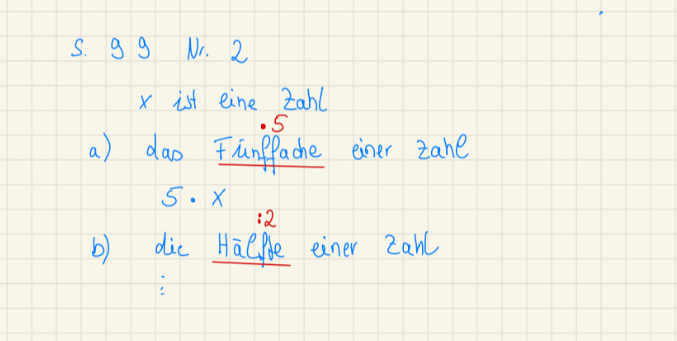 S. 99 Nr. 2
x ist eine Zahl
· 5
a) das Fünffache einer Zahl
5 · x
: 2
b) die Hälfte einer Zahl
⋮